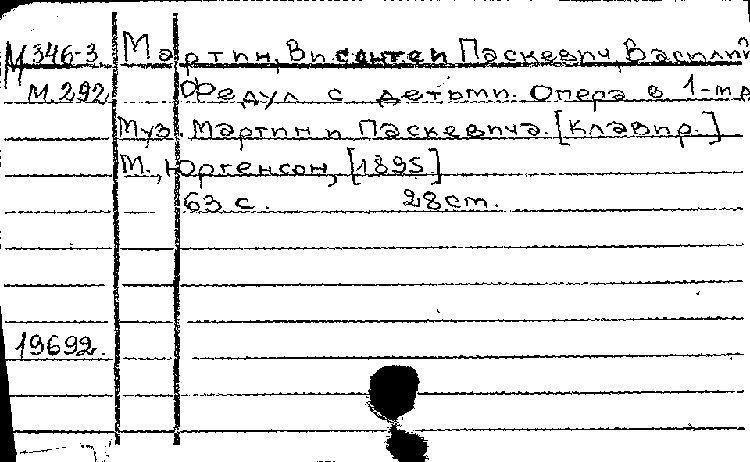 М346-3 Мартин, Висенте и Паскевич, Василий
М.292 Федул с детьми. Опера в 1-м д
Муз. Мартин и Паскевича. [Клавир.]
М., Юргенсон, [1895]
63 с. 28 cm.
19692.